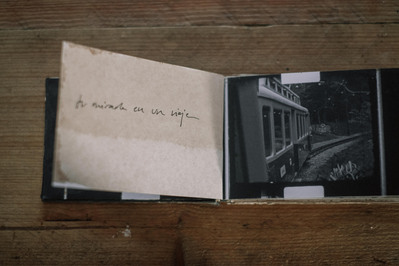 tu mirada en un viaje